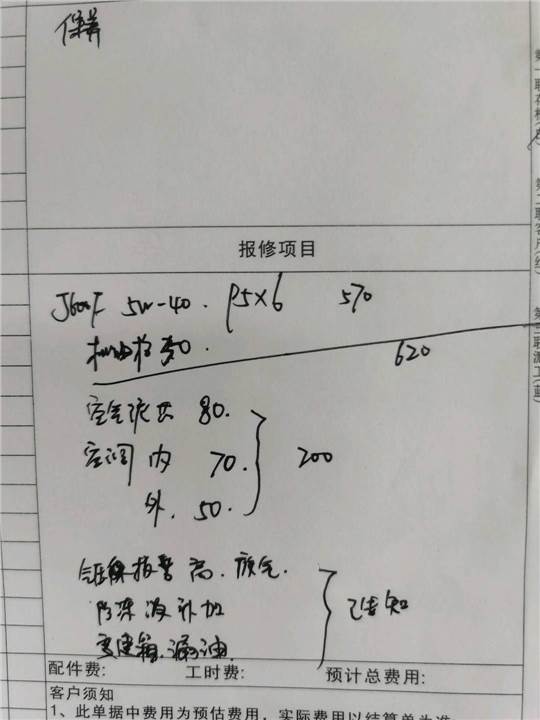 保养
报修项目
J600F 5W-40. 95×6 570
机油格 50.
620
空气滤芯 80.
空调 内 70. 200
外. 50.
报警 高. 放气.
防冻液补加 已告知
变速箱.漏油
配件费: 工时费: 预计总费用:
客户须知
1、此单据中费用为预估费用,实际费用以结算单为准
第二联客户(红)